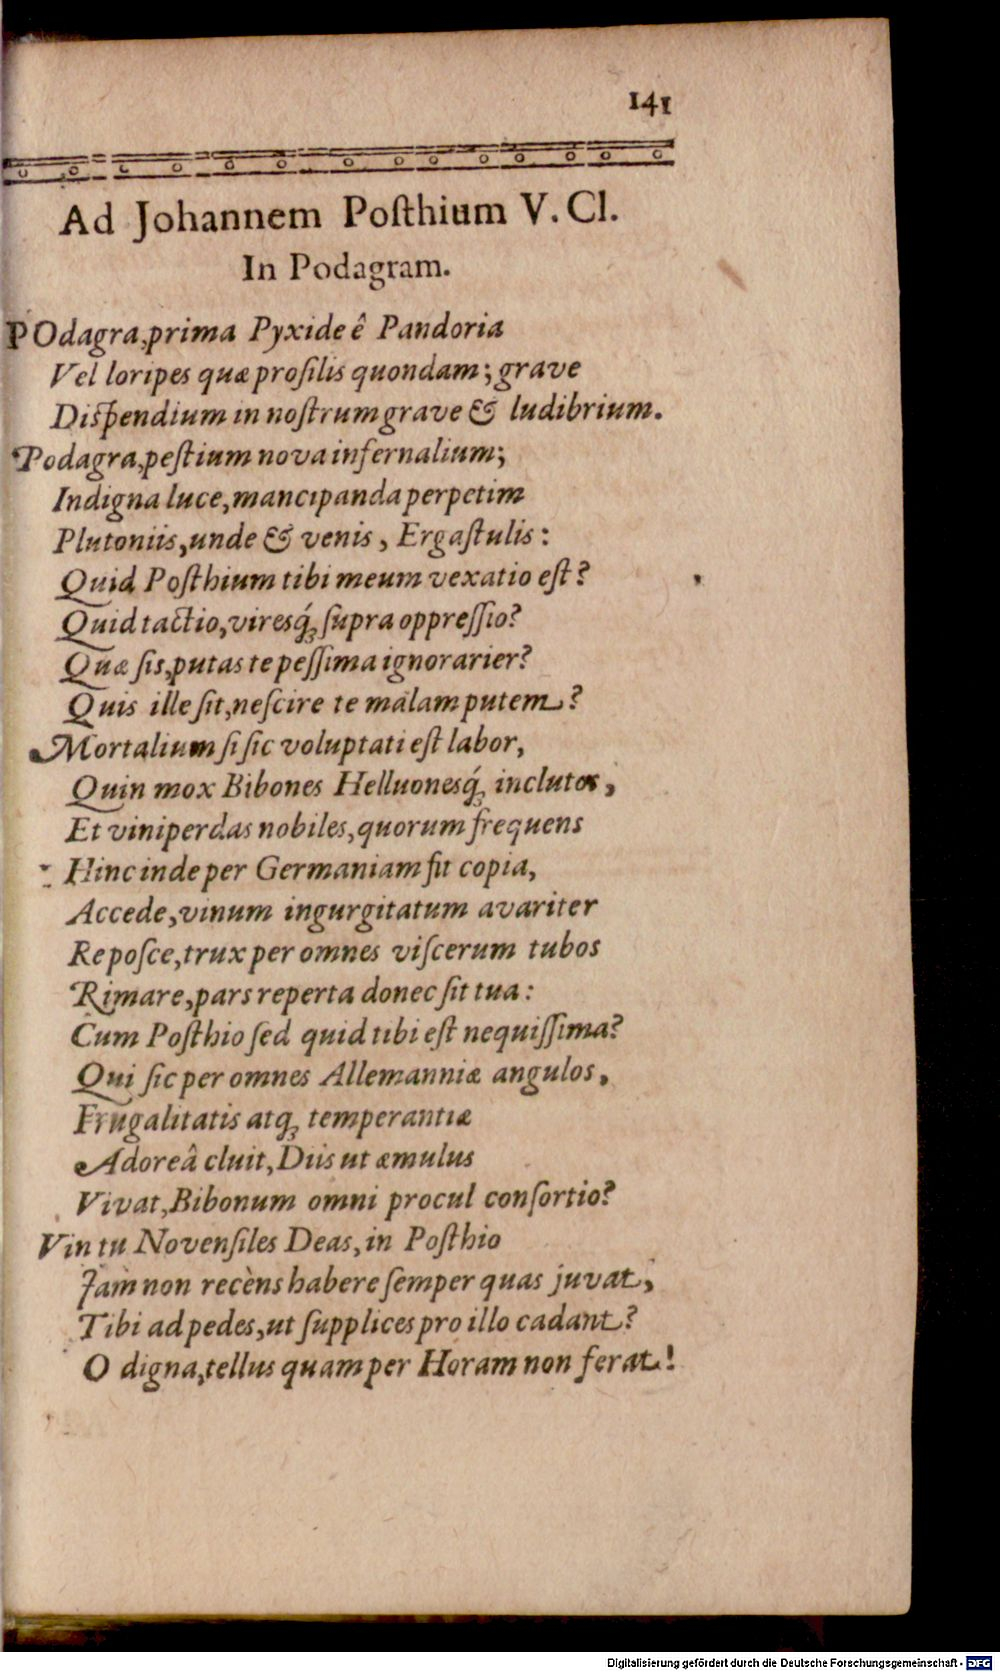 141
Ad Johannem Posthium V. Cl.
In Podagram.
POdagra, prima Pyxide ê Pandoria
Vel loripes quæ prosilis quondam; grave
Dispendium in nostrum grave & ludibrium.
Podagra, pestium nova infernalium;
Indigna luce, mancipanda perpetim
Plutoniis, unde & venis, Ergastulis:
Quid Posthium tibi meum vexatio est?
Quid tactio, viresq́; supra oppressio?
Quæ sis, putas te pessima ignorarier?
Quis ille sit, nescire te malam putem?
Mortalium si sic voluptati est labor,
Quin mox Bibones Helluonesq́; inclutos,
Et viniperdas nobiles, quorum frequens
Hinc inde per Germaniam fit copia,
Accede, vinum ingurgitatum avariter
Reposce, trux per omnes viscerum tubos
Rimare, pars reperta donec sit tua:
Cum Posthio sed quid tibi est nequissima?
Qui sic per omnes Allemanniæ angulos,
Frugalitatis atq; temperantiæ
Adoreâ cluit, Diis ut æmulus
Vivat, Bibonum omni procul consortio?
Vin tu Novensiles Deas, in Posthio
Jam non recèns habere semper quas juvat,
Tibi ad pedes, ut supplices pro illo cadant?
O digna, tellus quam per Horam non ferat!
Digitalisierung gefördert durch die Deutsche Forschungsgemeinschaft - DFG